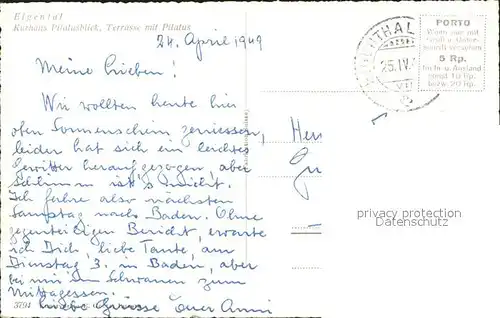 Eigental
Kurhaus Pilatusblick, Terrasse mit Pilatus
24. April 1949
Meine Lieben!
Wir wollten heute hier
oben Sonnenschein geniessen,
leider hat sich ein leichtes
Gewitter heraufgezogen, aber
schlimm ist's nicht.
Ich fahre also nächsten
Samstag nach Baden. Ohne
gegenteiligen Bericht, erwarte
ich Dich, liebe Tante, am
Dienstag 3. in Baden, aber
bei mir im Schwanen zum
Mittagessen.
5794
Liebe Grüsse Euer Anni
THAL
25.IV.
VII
PORTO
Wenn nur mit
Gruß u. Unter-
schrift versehen
5 Rp.
Im In- u. Ausland
sonst 10 Rp.
bezw. 20 Rp.
Herr
privacy protection
Datenschutz